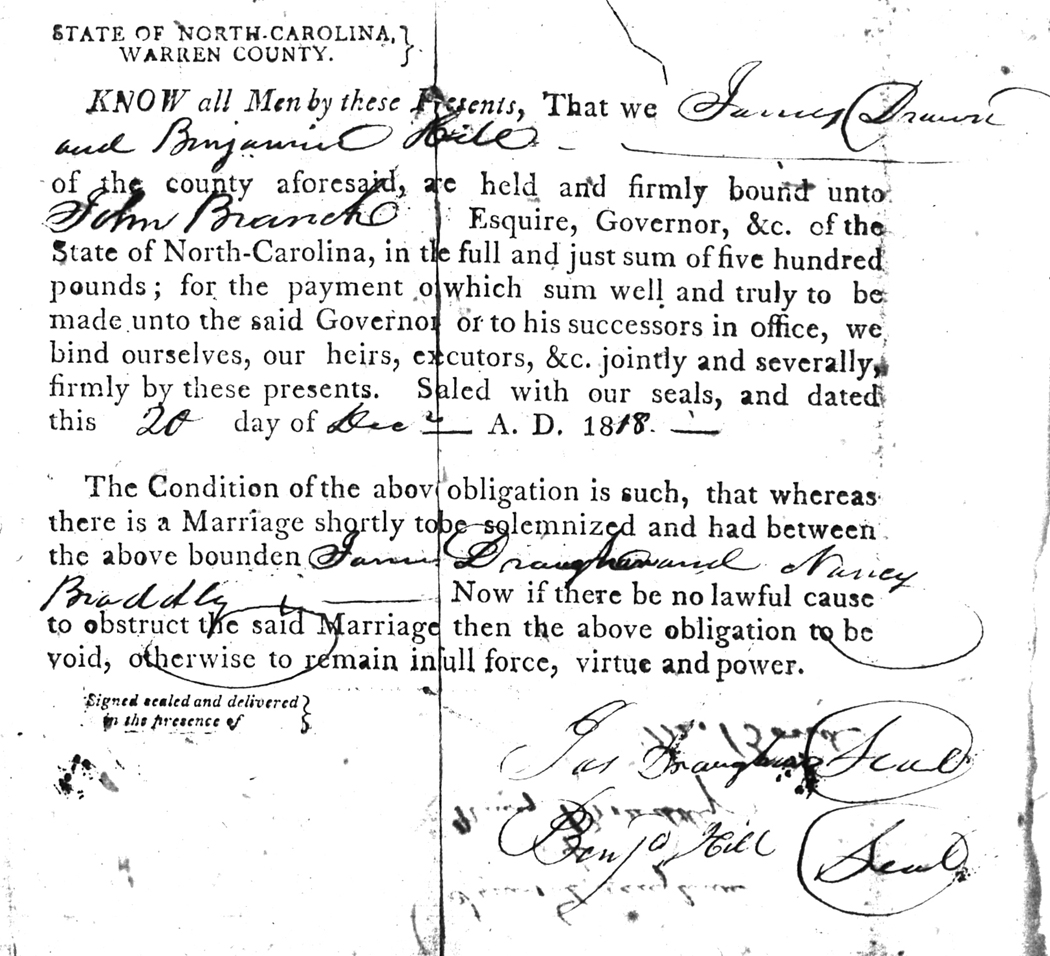 STATE OF NORTH-CAROLINA,
WARREN COUNTY.
KNOW all Men by these Presents, That we James Drawn
and Benjamin Hill
of the county aforesaid, are held and firmly bound unto
John Branch Esquire, Governor, &c. of the
State of North-Carolina, in the full and just sum of five hundred
pounds; for the payment of which sum well and truly to be
made unto the said Governor or to his successors in office, we
bind ourselves, our heirs, executors, &c. jointly and severally,
firmly by these presents. Sealed with our seals, and dated
this 20 day of Decr A. D. 1818.
The Condition of the above obligation is such, that whereas
there is a Marriage shortly to be solemnized and had between
the above bounden James Draughan and Nancy
Braddly Now if there be no lawful cause
to obstruct the said Marriage then the above obligation to be
void, otherwise to remain in full force, virtue and power.
Signed sealed and delivered
in the presence of
Jas Draughan Seal
Benja Hill Seal